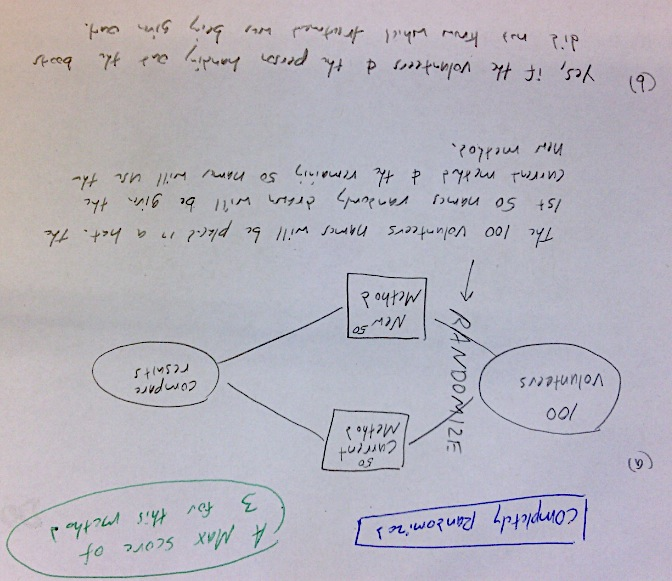 Completely Randomized
A Max score of
3 for this method
(a)
100
Volunteers
RANDOMIZE
50
Current
Method
New 50
Method
Compare
results
The 100 volunteers names will be placed in a hat. The
1st 50 names randomly drawn will be given the
current method & the remaining 50 names will use the
new method.
(b)
Yes, if the volunteers & the person handing out the boots
did not know which treatment was being given out.